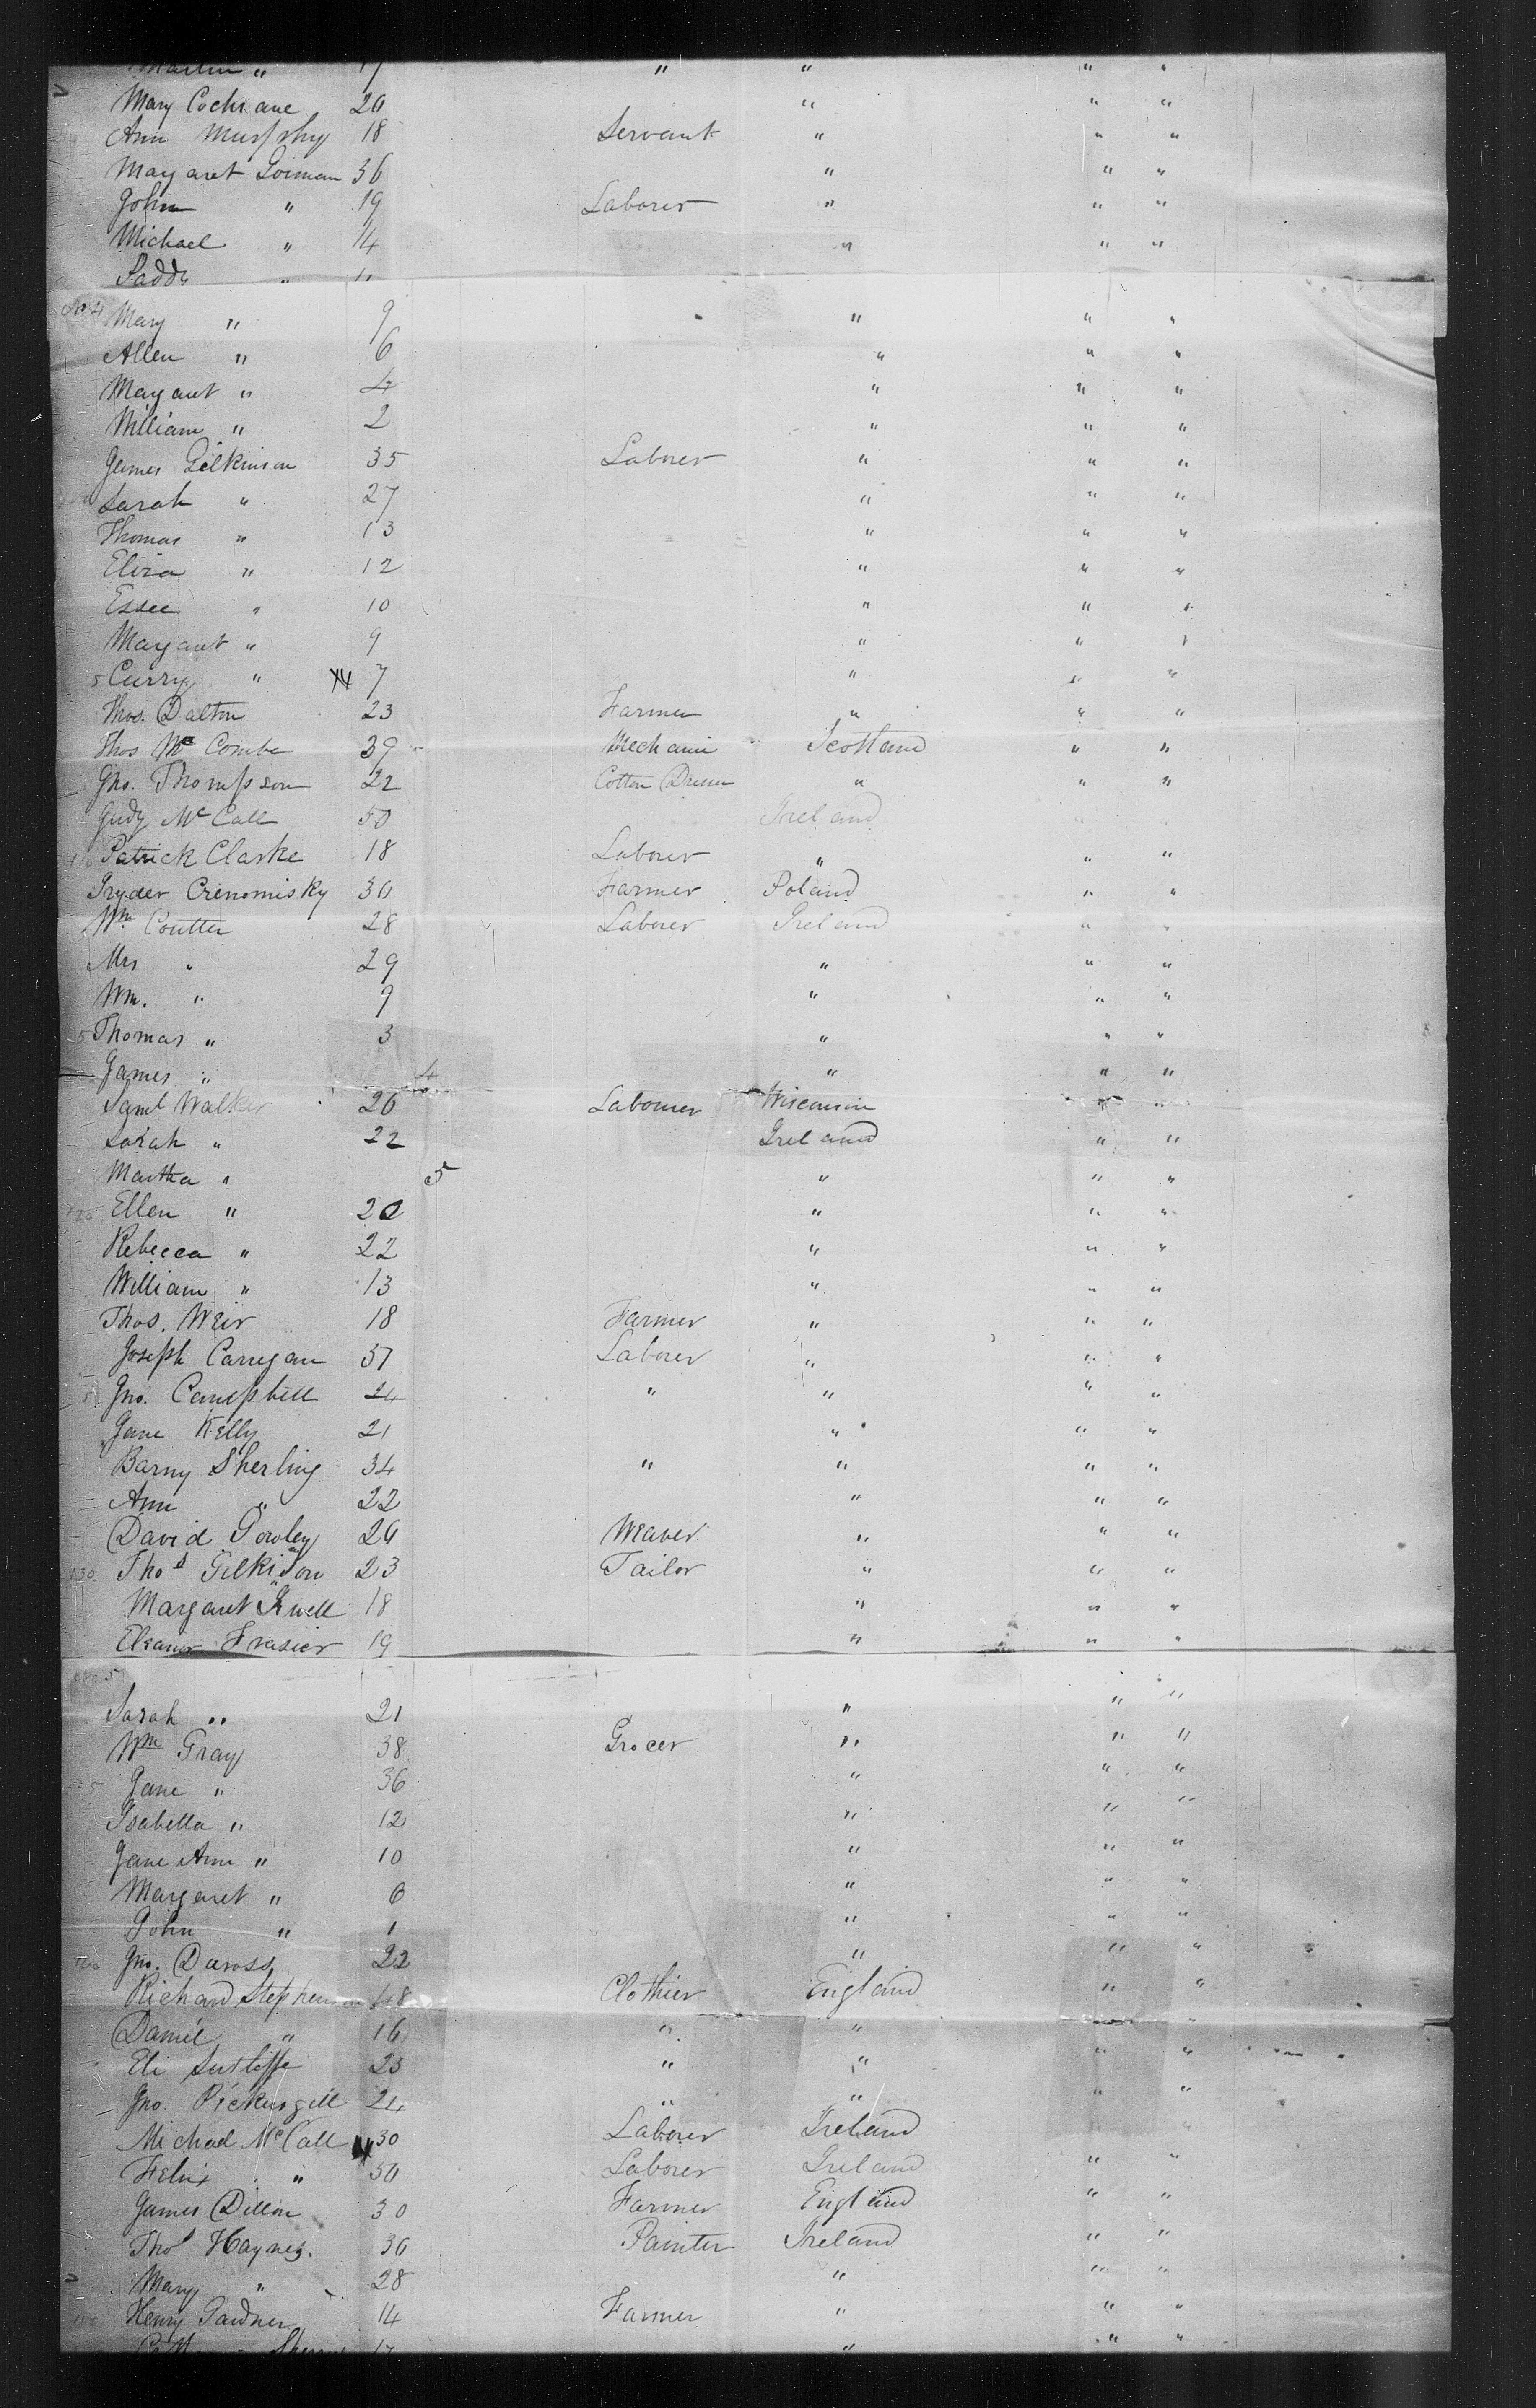 Martin " 17 " " " "
Mary Cochrane 20 " " "
Ann Murphy 18 Servant " " "
Margaret Gorman 36 " " "
John " 19 Laborer " " "
Michael " 14 " " "
Paddy " 11
No 4 Mary " 9 " " "
Allen " 6 " " "
Margaret " 4 " " "
William " 2 " " "
James Gilkinson 35 Laborer " " "
Sarah " 27 " " "
Thomas " 13 " " "
Eliza " 12 " " "
Essee " 10 " " "
Margaret " 9 " " "
5 Curry " 7 " " "
Thos. Dalton 23 Farmer " " "
Thos Mc Combe 39 Mechanic Scotland " "
Jno. Thompson 22 Cotton Dresser " " "
Judy Mc Call 50 Ireland
Patrick Clarke 18 Laborer " " "
Pryder Crenomisky 30 Farmer Poland " "
Wm Coulter 28 Laborer Ireland " "
Mrs " 29 " " "
Wm. " 9 " " "
5 Thomas " 3 " " "
James " 4 " " "
Saml Walker 26 Labourer Wisconsin " "
Sarah " 22 Ireland " "
Martha " 5 " " "
Ellen " 20 " " "
Rebecca " 22 " " "
William " 13 " " "
Thos. Weir 18 Farmer " " "
Joseph Carregan 37 Laborer " " "
Jno. Campbell 24 " " " "
Jane Kelly 21 " " "
Barny Sherling 34 " " " "
Ann " 22 " " "
David Gowley 26 Weaver " " "
130 Thos Gilkison 23 Tailor " " "
Margaret 18 " " "
Eleanor Frasier 19 " " "
No 5
Sarah " 21 " " "
Wm Gray 38 Grocer " " "
Jane " 36 " " "
Isabella " 12 " " "
Jane Ann " 10 " " "
Margaret " 6 " " "
John " 1 " " "
Jno. Duross 22 " " "
Richard Stephenson 48 Clothier England " "
Daniel " 16 " " "
Eli Sutliffe 23 " " " "
Jno. Pickersgill 24 " " " "
Michael Mc Call 30 Laborer Ireland
Felix " 50 Laborer Ireland " "
James Dillon 30 Farmer England " "
Thos Haynes. 36 Painter Ireland " "
Mary " 28 " " "
Henry Gardner 14 Farmer " " "
" " "